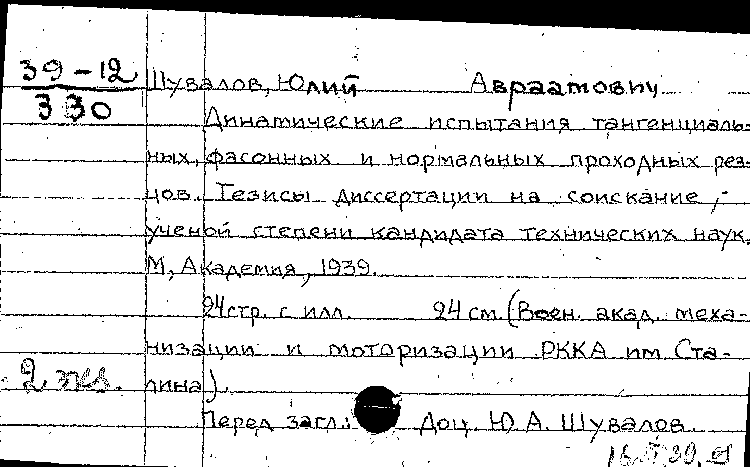 39-12 Шувалов, Юлий Авраамович
330
Динамические испытания тангенциаль-
ных, фасонных и нормальных проходных рез-
цов. Тезисы диссертации на соискание,-
ученой степени кандидата технических наук.
М, Академия, 1939.
24стр. с илл. 24 см (Воен. акад. меха-
низации и моторизации РККА им Ста-
2 экз. лина).
Перед загл.: Доц. Ю. А. Шувалов.